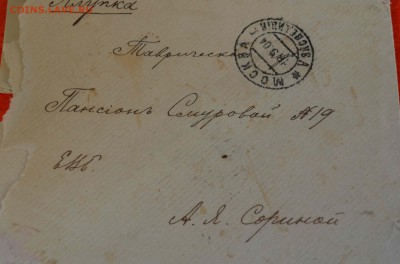 COINS.LAVE.RU
Алупка
Таврическ
МОСКВА
Пансіонъ Смуровой №19
ЕВБ.
А. Я. Сориной